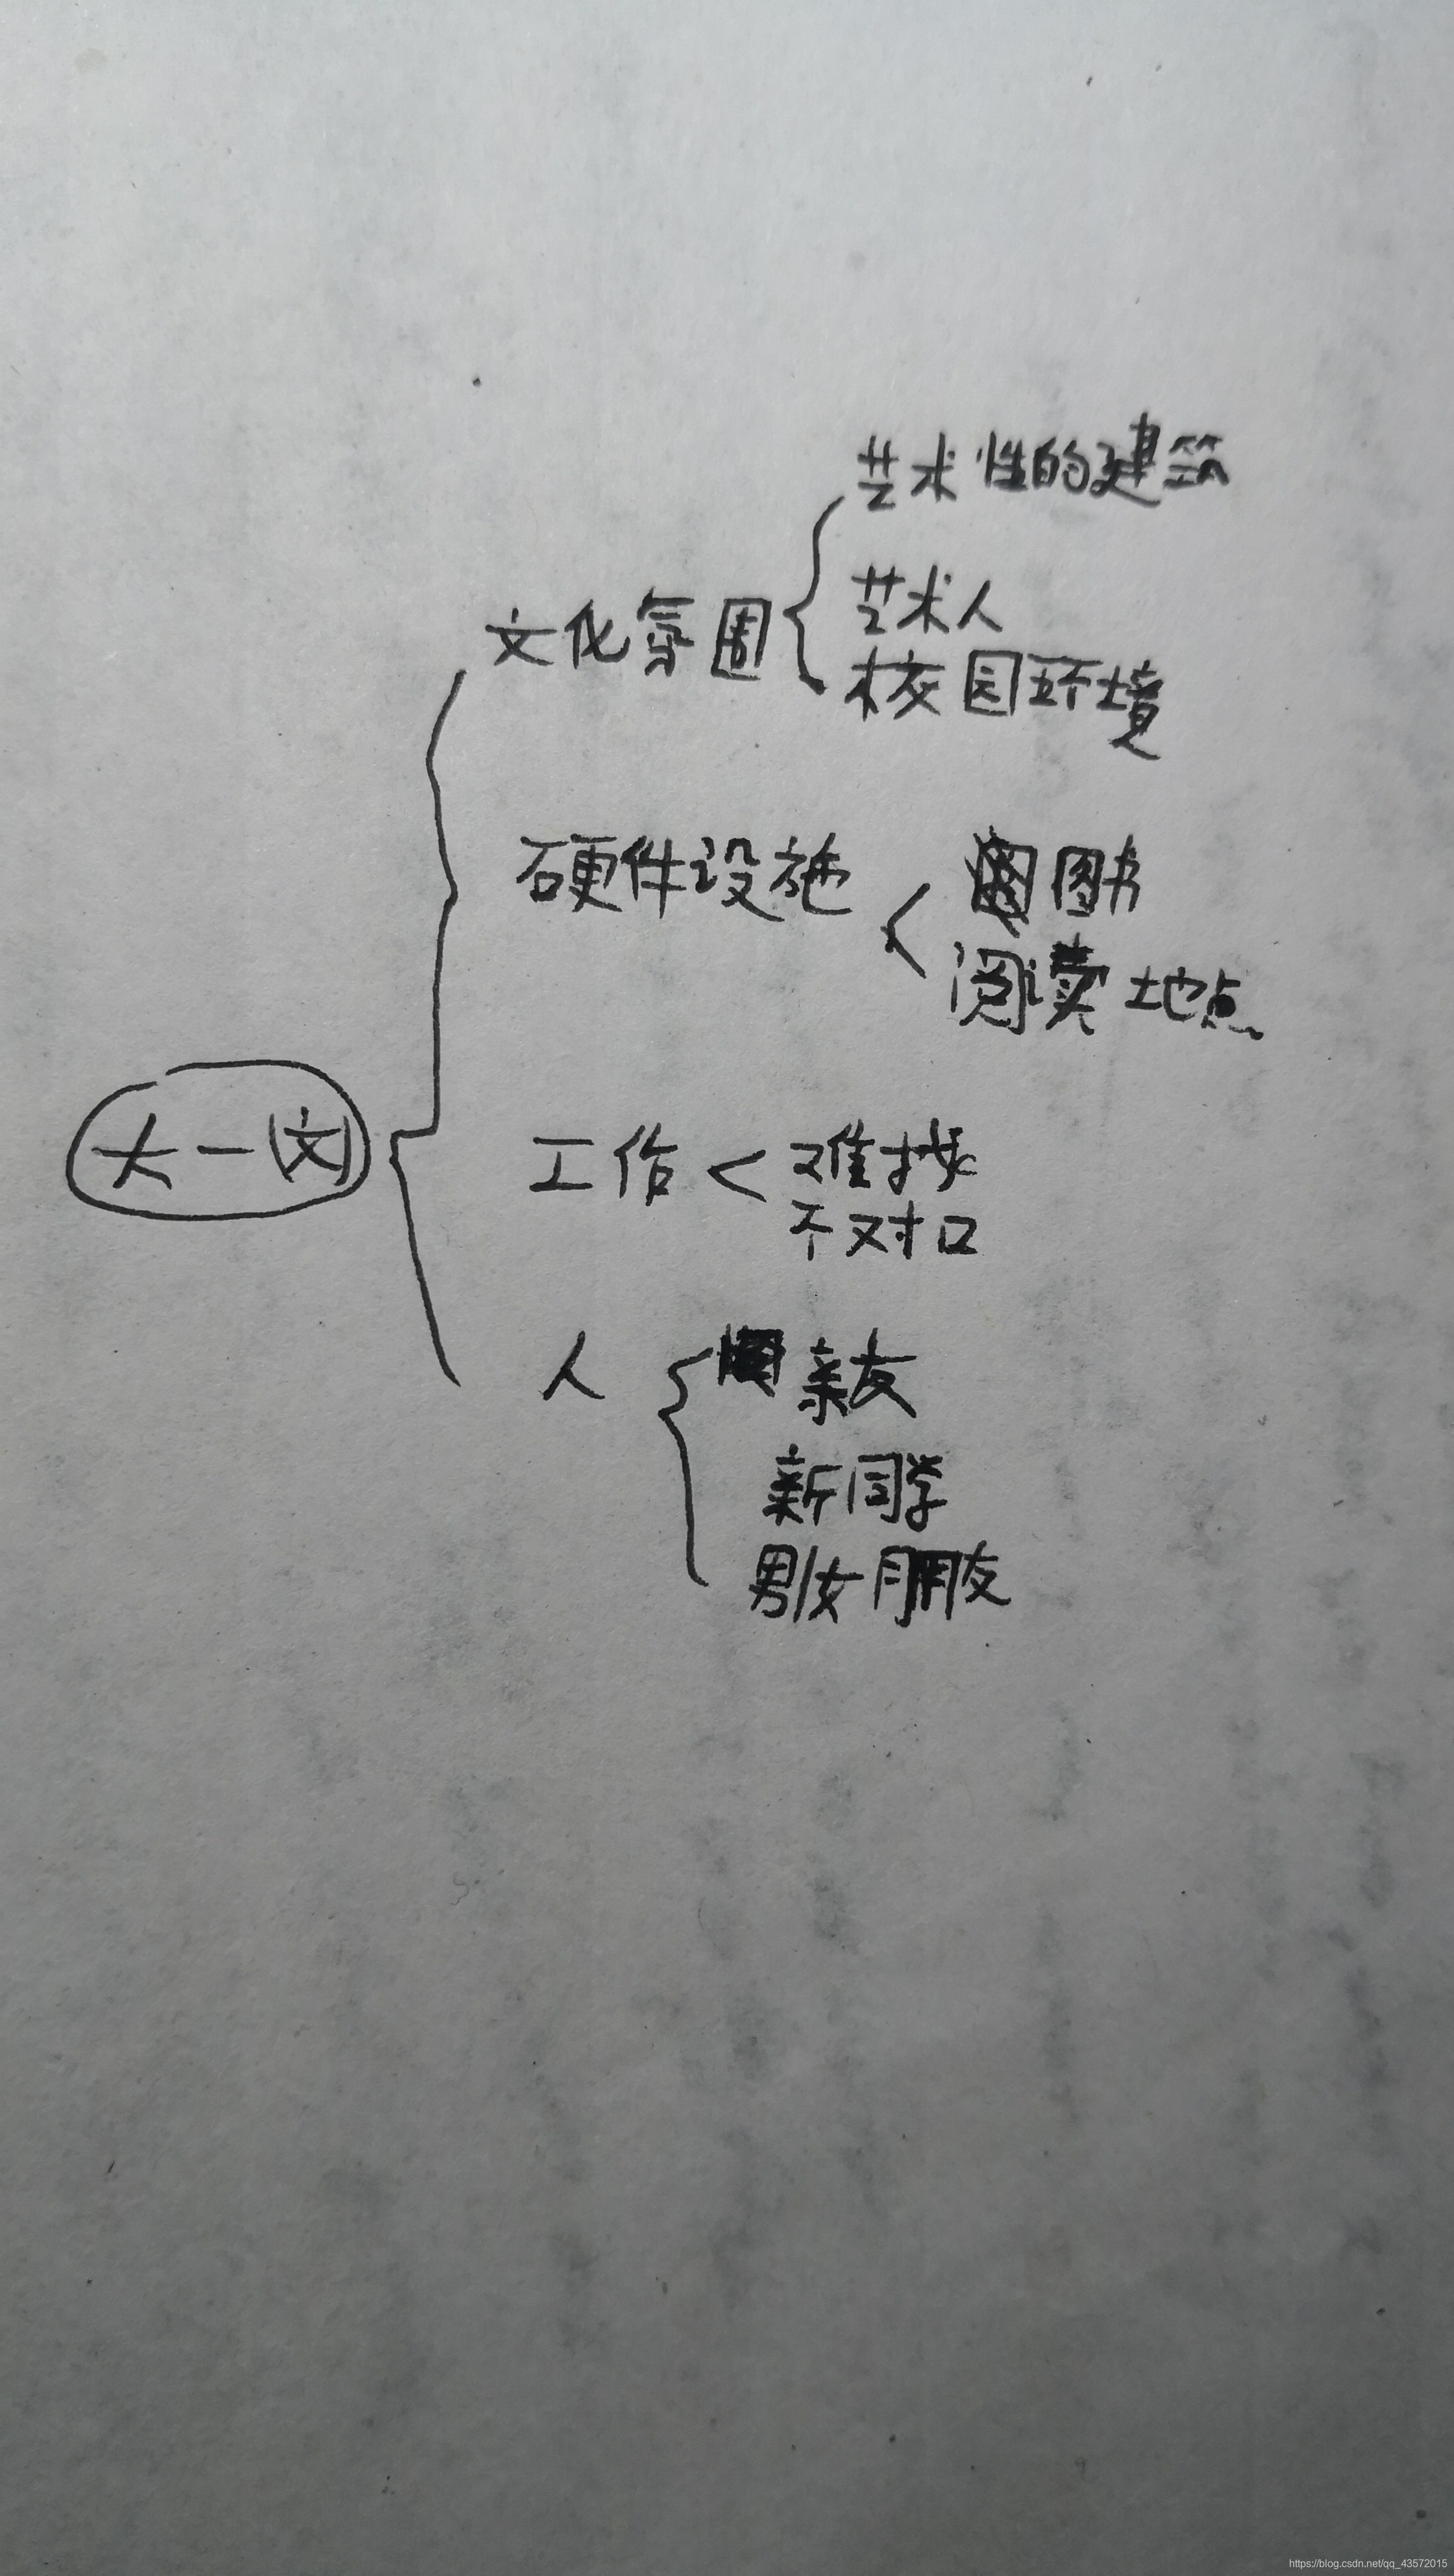 艺术性的建筑
文化氛围
艺术人
校园环境
硬件设施
图书
阅读地点
大一(文)
工作
难找
不对口
人
亲友
新同学
男/女朋友
https://blog.csdn.net/qq_43572015